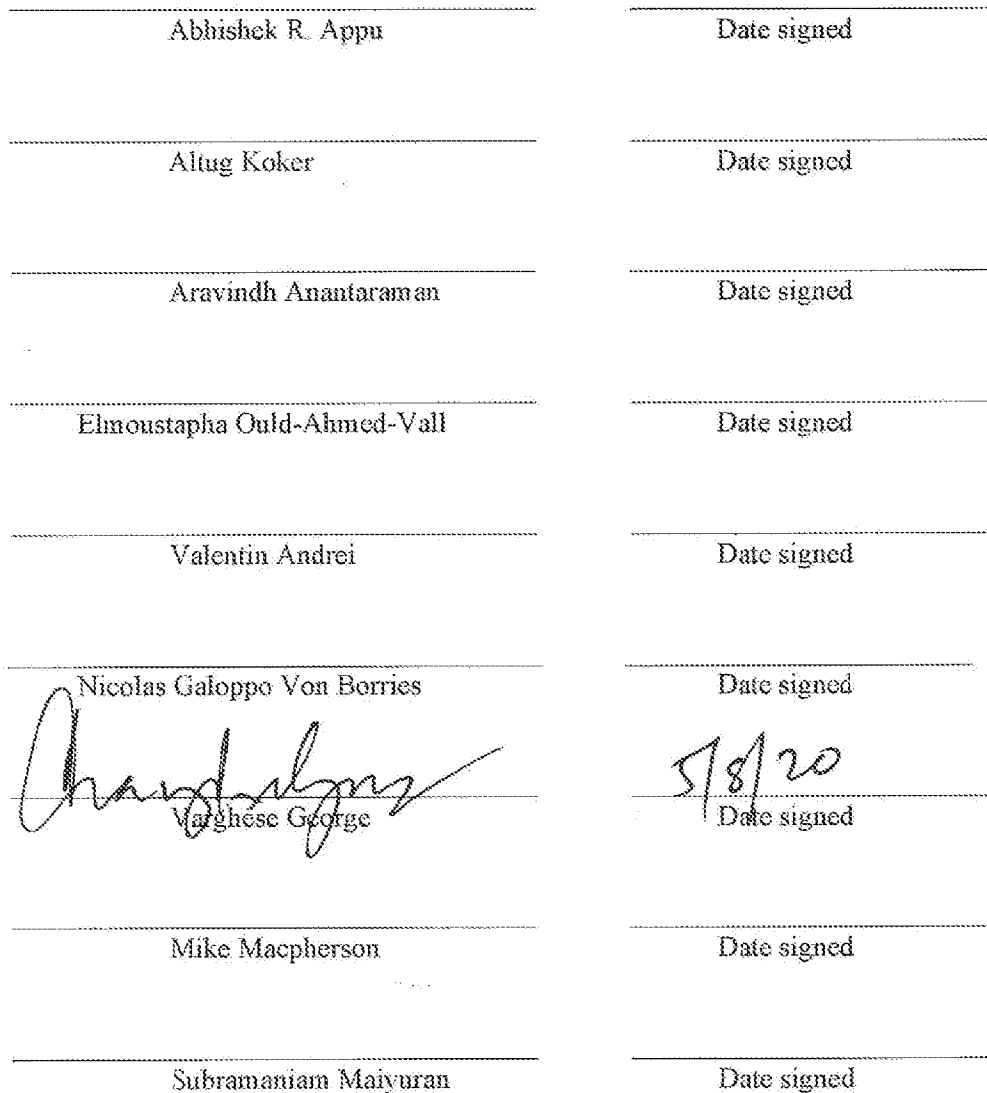 Abhishek R. Appu Date signed
Altug Koker Date signed
Aravindh Anantaraman Date signed
Elmoustapha Ould-Ahmed-Vall Date signed
Valentin Andrei Date signed
Nicolas Galoppo Von Borries Date signed
5/8/20
Varghese George Date signed
Mike Macpherson Date signed
Subramaniam Maiyuran Date signed